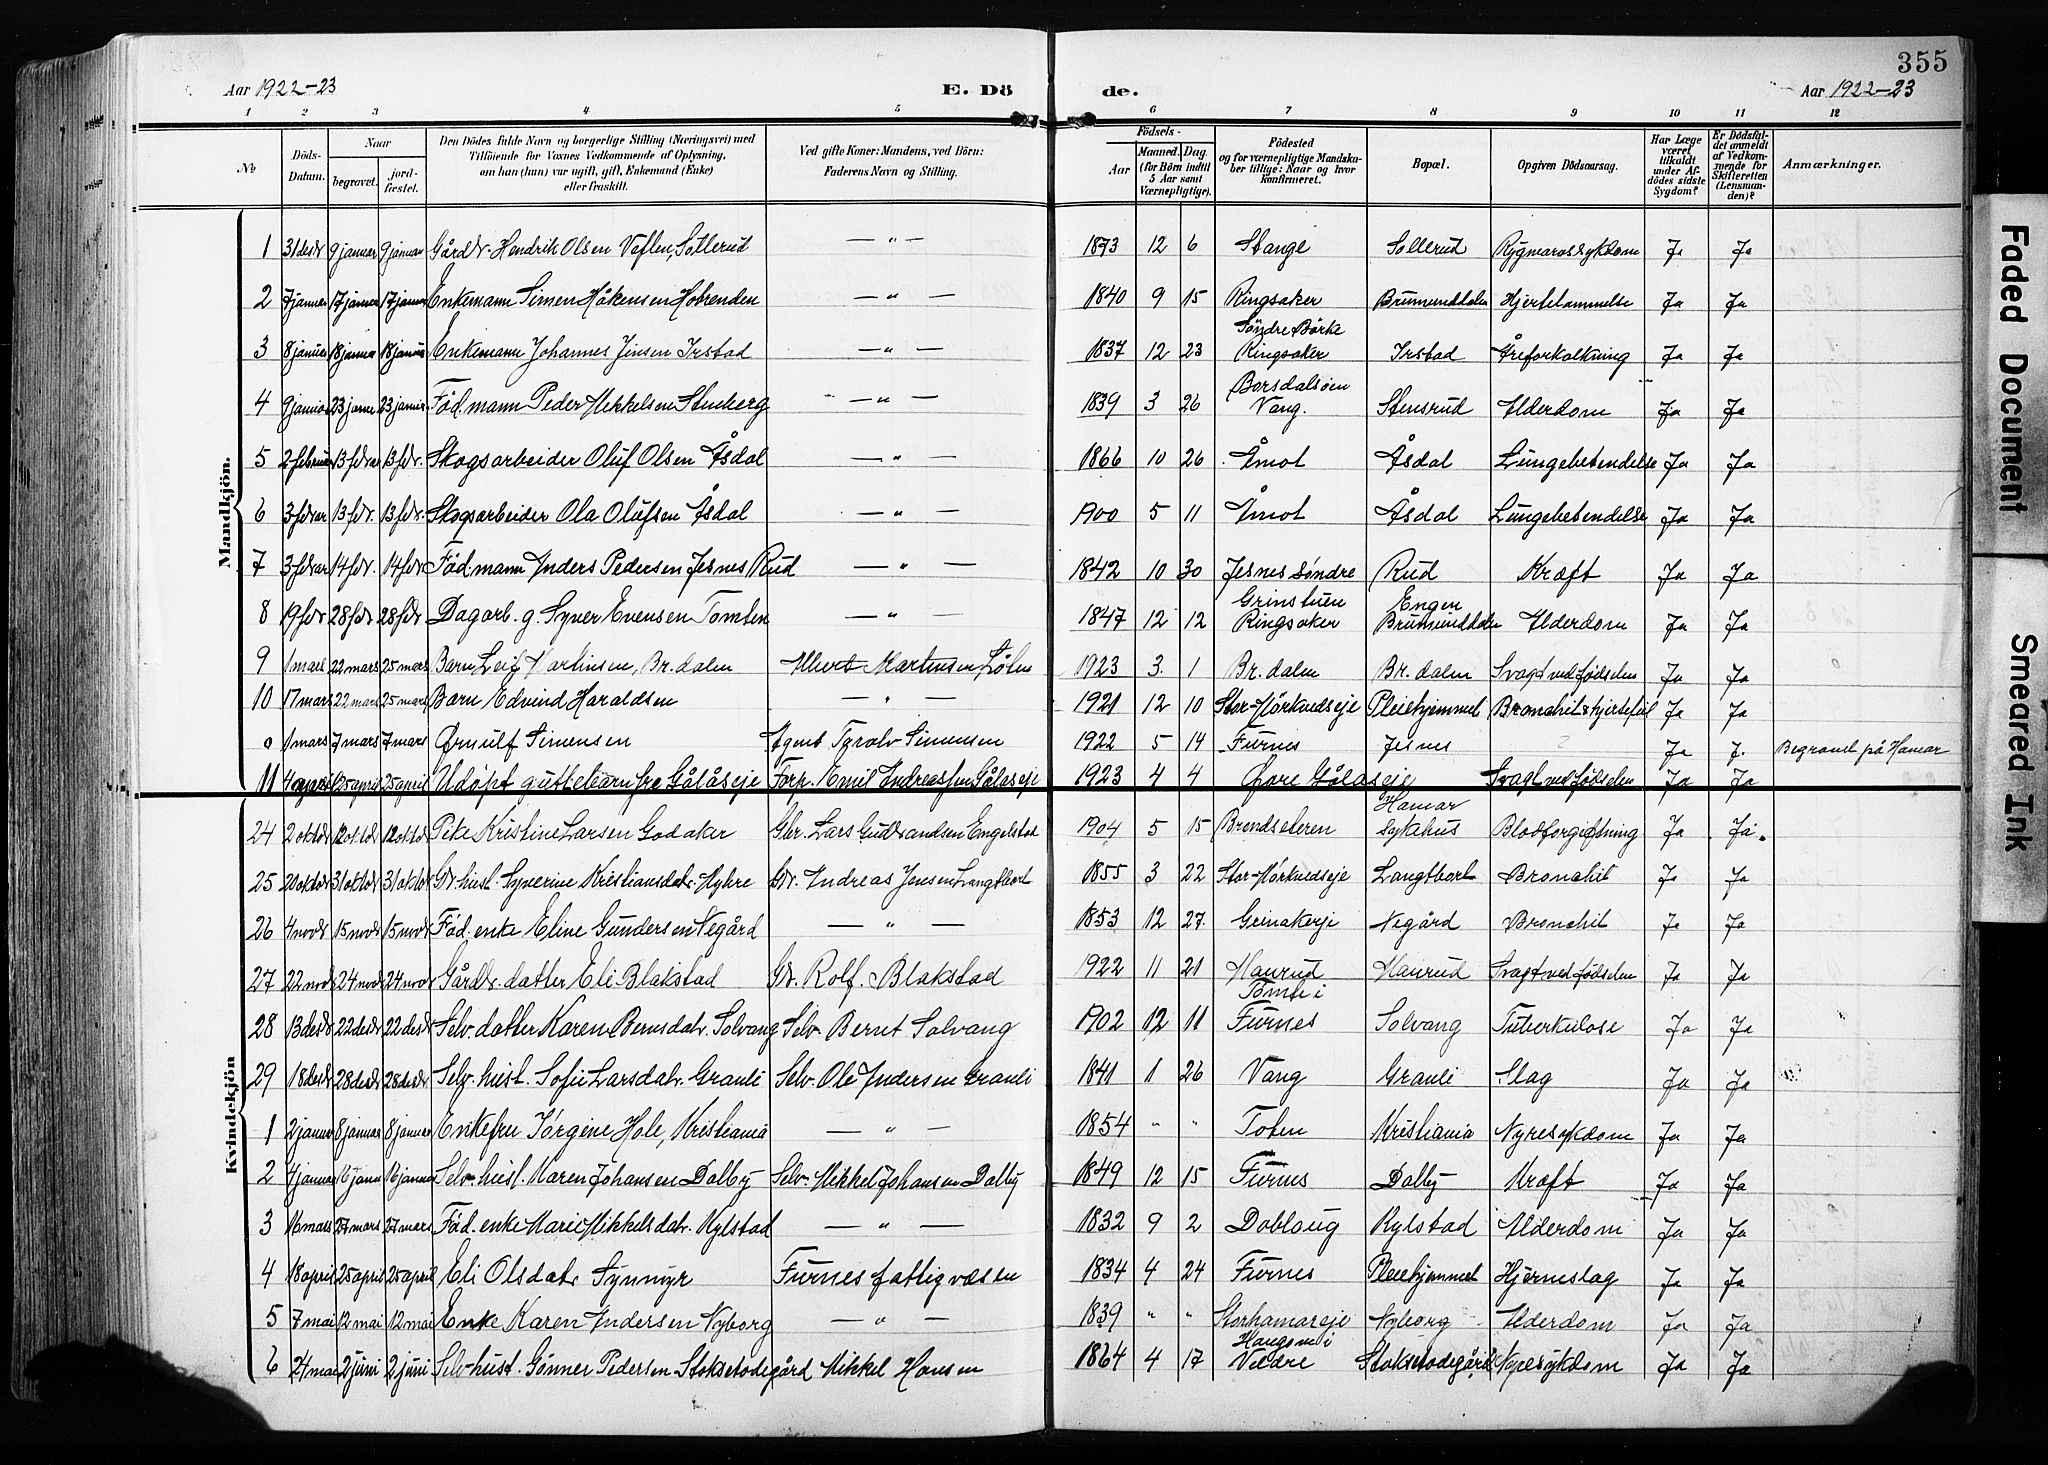 355
Aar 1922-23 E. Dö de. Aar 1922-23
1 2 3 4 5 6 7 8 9 10 11 12
No
Döds-Datum.
Naar begravet. jordfæstet.
Den Dödes fulde Navn og borgerlige Stilling (Næringsvei) med Tilföiende for Voxnes Vedkommende af Oplysning, om han (hun) var ugift, gift, Enkemand (Enke) eller fraskilt.
Ved gifte Koner: Mandens, ved Börn: Faderens Navn og Stilling.
Födsels- Aar Maaned. Dag. (for Börn indtil 5 Aar samt Værnepligtige).
Födested og for værnepligtige Mandskaber tillige: Naar og hvor konfirmeret.
Bopæl.
Opgiven Dödsaarsag.
Har Læge været tilkaldt under Afdödes sidste Sygdom?
Er Dödsfaldet anmeldt af Vedkommende for Skifteretten (Lensmanden)?
Anmærkninger.
Mandkjön.
1 31 desbr 9 januar 9 januar Gårdbr. Hendrik Olsen Veflen, Sollerud — " — 1873 12 6 Stange Sollerud Rygmarvssykdom Ja Ja
2 7 januar 17 januar 17 januar Enkemann Simen Håkensen — " — 1840 9 15 Ringsaker Brumunddalen Hjertelammelse Ja Ja
3 8 januar 18 januar 18 januar Enkemann Johannes Jensen Irstad — " — 1837 12 23 Söndre Börke Ringsaker Irstad Åreforkalkning Ja Ja
4 9 januar 23 januar 23 januar Föd.mann Peder Mikkelsen Stenberg — " — 1839 3 26 Vang. Stensrud Alderdom Ja Ja
5 2 februar 13 febr. 13 febr. Skogsarbeider Oluf Olsen Åsdal — " — 1866 10 26 Åmot Åsdal Lungebetendelse Ja Ja
6 3 febr. 13 febr. 13 febr. Skogsarbeider Ola Olufsen Åsdal — " — 1900 5 11 Åmot Åsdal Lungebetendelse Ja Ja
7 3 febr. 14 febr. 14 febr. Föd.mann Anders Pedersen Jesnes Rud — " — 1842 10 30 Jesnes söndre Rud Kræft Ja Ja
8 19 febr 28 febr 28 febr Dagarb. g. Syver Evensen Tomten — " — 1847 12 12 Grinstuen Ringsaker Engen Brumunddalen Alderdom Ja Ja
9 1 mars 22 mars 25 mars Barn Leif Martinsen, Br.dalen Albert Martinsen 1923 3 1 Br.dalen Br.dalen Svagt ved födselen Ja Ja
10 17 mars 22 mars 25 mars Barn Edvind Haraldsen " 1921 12 10 Stor-Mörkvedseje Pleiehjemmet Bronchit & hjertefeil Ja Ja
0 1 mars 7 mars 7 mars Ørnulf Simensen Agent Tjrolv Simensen 1922 5 14 Furnes Jesnes ? Ja J. Begravet på Hamar
11 4 april 25 april 25 april Udöpt guttebarn fra Gålåseje Forp. Emil Andreassen Gålåseje 1923 4 4 Övre Gålåseje Svagt ved födselen Ja Ja
Kvindekjön
24 2 oktbr 12 oktbr 12 oktbr Pike Kristine Larsen Godaker Gbr. Lars Gudbrandsen Engelstad 1904 5 15 Brendseteren Hamar Sykehus Blodforgiftning Ja Ja.
25 20 oktbr 31 oktbr 31 oktbr Gbr. hust. Syverine Kristiansdatr. Myhre Gbr. Andreas Jensen 1855 3 22 Stor-Mörkvedseje Bronchit Ja Ja
26 4 novbr 15 novbr 15 novbr Föd. enke Eline Gundersen Negård — " — 1853 12 27. Grinakerje Negård Bronchit Ja Ja
27 22 novbr 24 novbr 24 novbr Gårdbr. datter Eli Blakstad Gbr. Rolf. Blakstad 1922 11 21 Maurud Maurud Svagt ved födselen Ja Ja
28 13 desbr 22 desbr 22 desbr Selv. datter Karen Berntsdatr. Solvang Selv. Bernt Solvang 1902 12 11 Tomte i Furnes Solvang Tuberkulose Ja Ja
29 18 desbr 28 desbr 28 desbr Selv. hust. Sofie Larsdatr. Granli Selv. Ole Andersen Granli 1841 1 26 Vang Granli Slag Ja Ja
1 2 januar 8 januar 8 januar Enkefru Jörgine Hole, Kristiania — " — 1854 " " Toten Kristiania Nyresykdom Ja Ja
2 4 januar 16 januar 16 januar Selv. hust. Maren Johansen Dalby Selv. Mikkel Johansen Dalby 1849 12 15 Furnes Dalby Kræft Ja Ja
3 16 mars 27 mars 27 mars Föd. enke Marie Mikkelsdatr. Kylstad — " — 1832 9 2 Dobloug Kylstad Alderdom Ja Ja
4 18 april 25 april 25 april Eli Olsdatr. Synmyr Furnes fattigvæsen 1834 4 24 Furnes Pleiehjemmet Hjerneslag Ja Ja
5 7 mai 12 mai 12 mai Enke Karen Andersen Nyborg — " — 1839 " " Storhamareje Nyborg Alderdom Ja Ja
6 24 mai 2 juni 2 juni Selv. hust. Gunner Pedersen Stoksetödegård Mikkel Hansen 1864 4 17 Veldre Stoksetödegård Nyresykdom Ja Ja
Faded Document
Smeared Ink